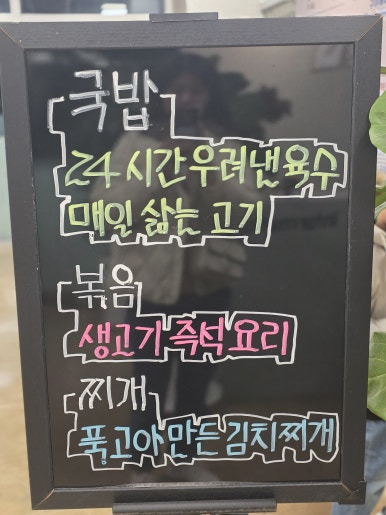 국밥
24시간 우려낸 육수
매일 삶는 고기
볶음
생고기 즉석 요리
찌개
푹 고아 만든 김치찌개